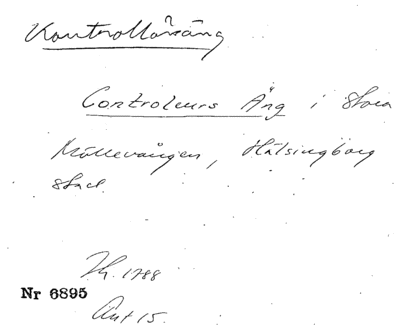 Kontrollörsäng
Controleurs Äng i Stora
Möllevången, Hälsingborg
stad.
Nr 6895
Akt 15.